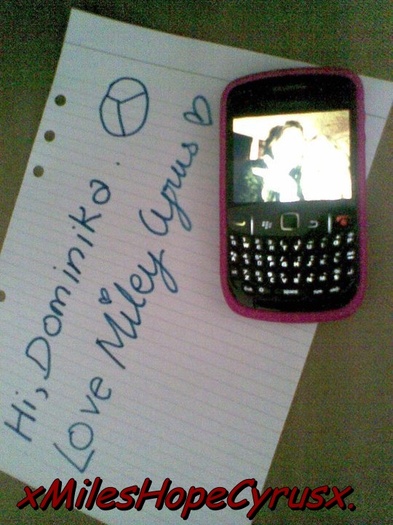 Hi, Dominika.
Love Miley Cyrus
xMilesHopeCyrusx.